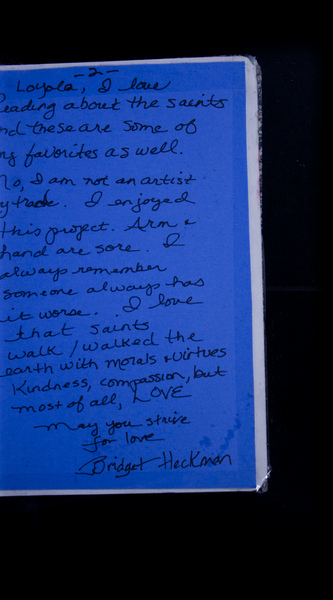 -2-
Loyola, I love
reading about the saints
and these are some of
my favorites as well.
No, I am not an artist
by trade. I enjoyed
this project. Arm &
hand are sore. I
always remember
someone always has
it worse. . I love
that saints
walk / walked the
earth with morals & virtues
Kindness, compassion, but
most of all, LOVE
May you strive
for love
Bridget Heckman